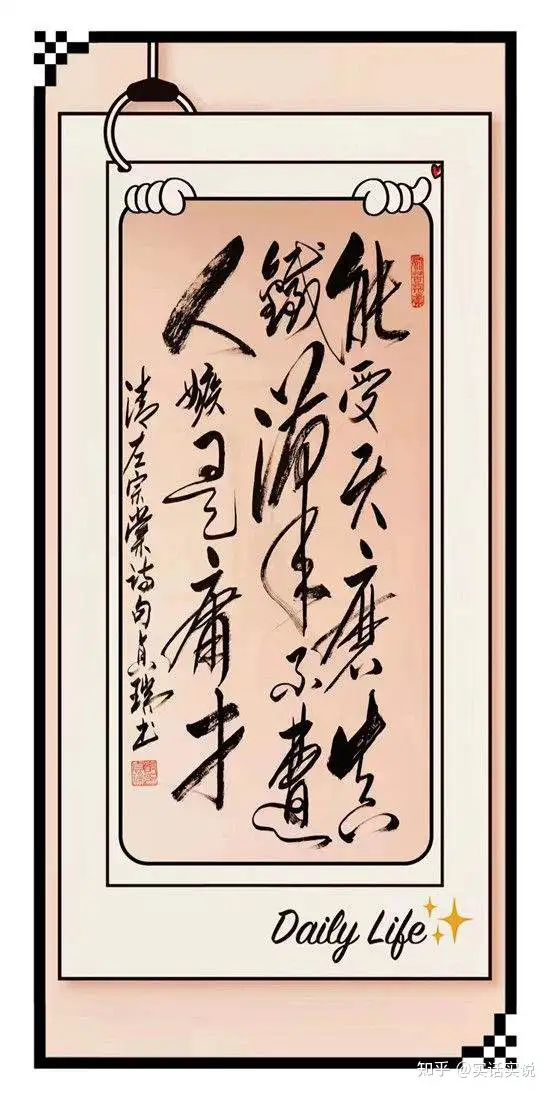 能受天磨真
鐵漢不遭
人嫉是庸才
清左宗棠诗句贞瑞书
Daily Life
知乎 @实话实说